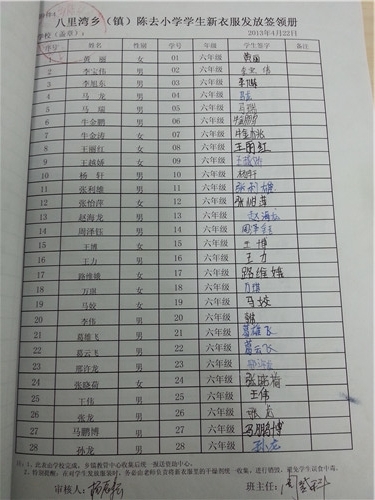 八里湾乡(镇)陈去小学学生新衣服发放签领册
学校(盖章): 2013年4月22日
序号 姓名 性别 学号 年级 学生签字 备注
1 黄丽 女 01 六年级 黄丽
2 李宝伟 男 02 六年级 李宝伟
3 李旭东 男 03 六年级
4 马龙 男 04 六年级 马龙
5 马瑞 男 05 六年级 马瑞
6 牛全鹏 男 06 六年级 牛全鹏
7 牛金涛 女 07 六年级 牛金涛
8 王丽红 女 08 六年级 王丽红
9 王越娇 女 09 六年级 王越娇
10 杨轩 男 10 六年级 杨轩
11 张利雄 男 11 六年级 张利雄
12 张怡萍 女 12 六年级 张怡萍
13 赵海龙 男 13 六年级 赵海龙
14 周泽钰 男 14 六年级
15 王博 女 15 六年级 王博
16 王力 男 16 六年级 王力
17 路维娥 女 17 六年级 路维娥
18 万琪 女 18 六年级 万琪
19 马姣 女 19 六年级 马姣
20 李伟 男 20 六年级
21 葛雄飞 男 21 六年级 葛雄飞
22 葛云飞 男 22 六年级 葛云飞
23 邢许龙 男 23 六年级
24 张晓荷 女 24 六年级 张晓荷
25 王伟 男 25 六年级 王伟
26 张龙 男 26 六年级 张龙
27 马鹏博 男 27 六年级 马鹏博
28 孙龙 男 28 六年级 孙龙
审核人: 班主任: